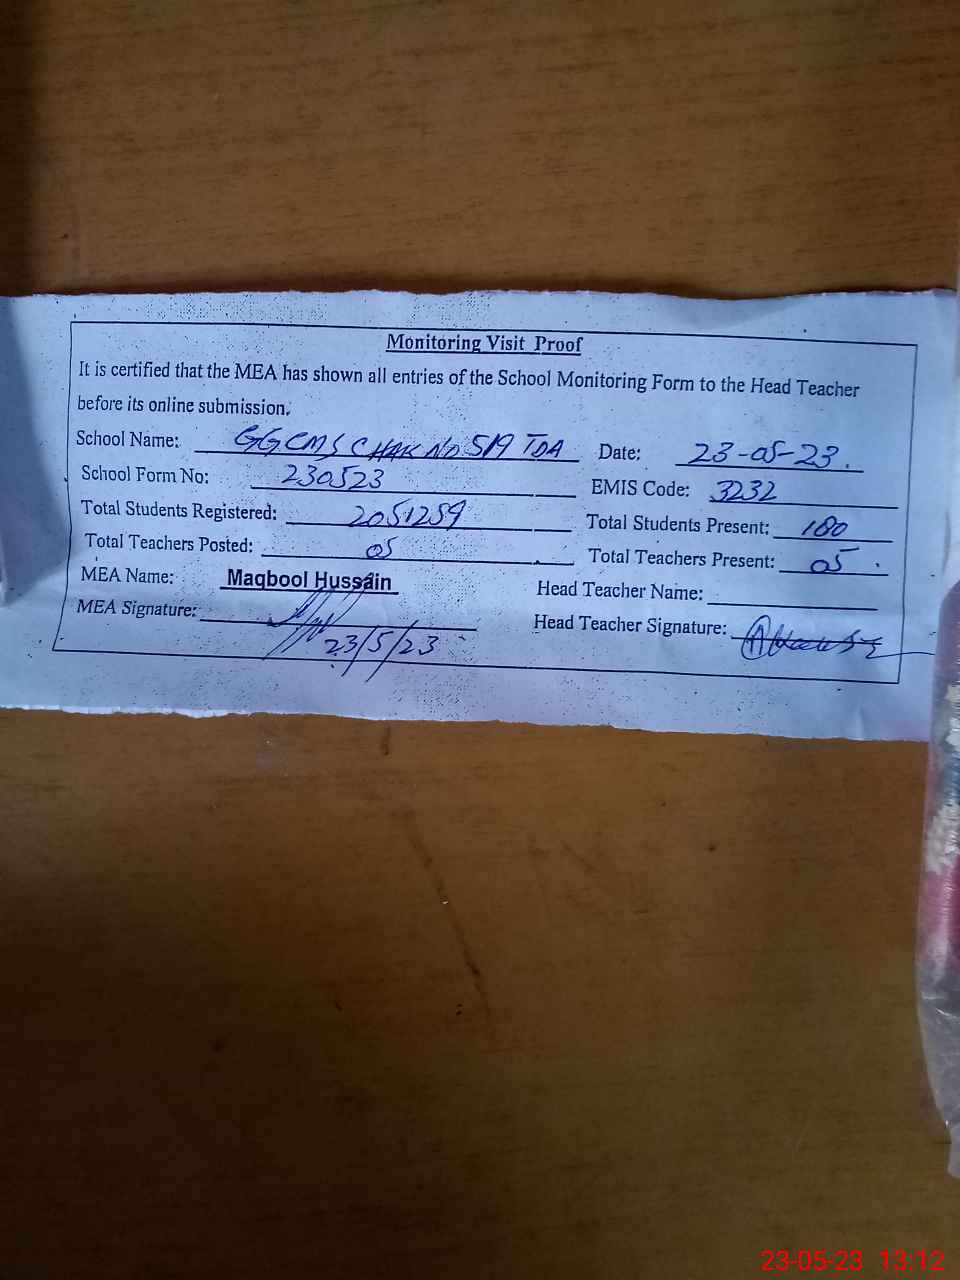 Monitoring Visit Proof
It is certified that the MEA has shown all entries of the School Monitoring Form to the Head Teacher
before its online submission.
School Name: GGCMS CHAK NO 519 TDA Date: 23-05-23.
School Form No: 230523 EMIS Code: 3232
Total Students Registered: 2051259 Total Students Present: 180
Total Teachers Posted: 05 Total Teachers Present: 05
MEA Name: Maqbool Hussain Head Teacher Name:
MEA Signature: Head Teacher Signature:
23/5/23
23-05-23 13:12